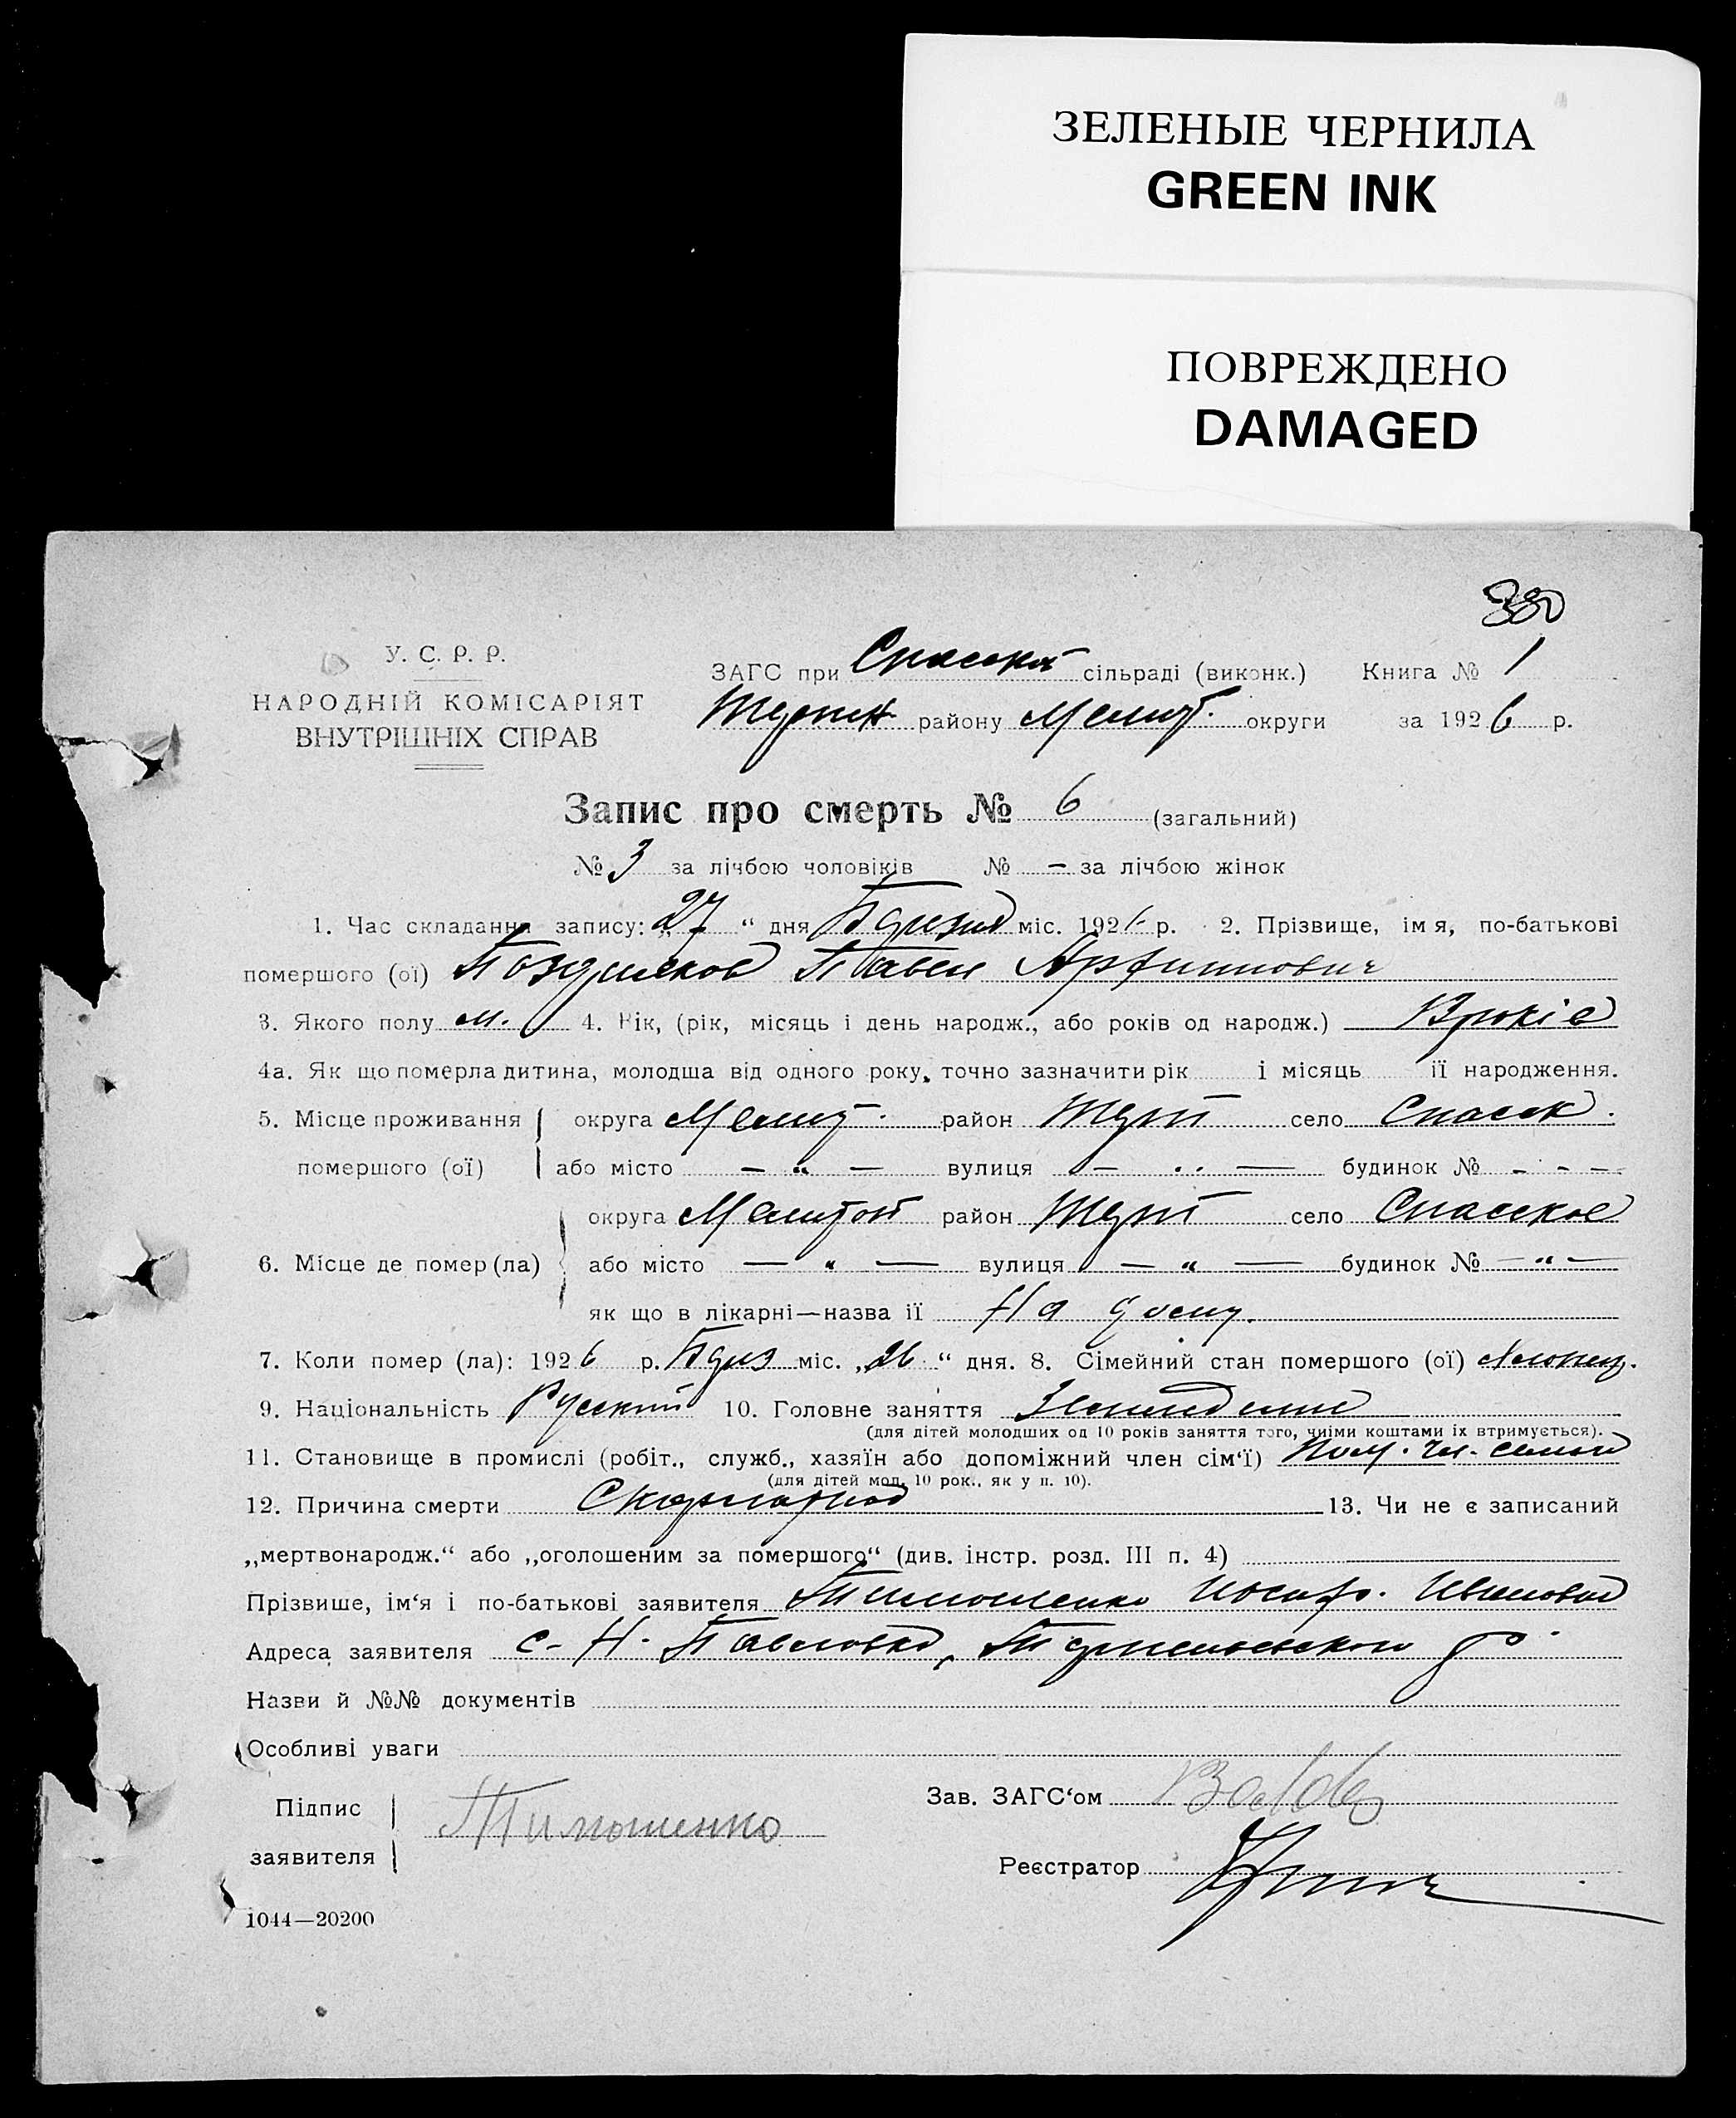 ЗЕЛЕНЫЕ ЧЕРНИЛА
GREEN INK
ПОВРЕЖДЕНО
DAMAGED
380
У. С. Р. Р.
НАРОДНІЙ КОМІСАРІЯТ
ВНУТРІШНІХ СПРАВ
ЗАГС при Спаській сільраді (виконк.) Книга № 1
району Мелит. округи за 1926 р.
Запис про смерть № 6 (загальний)
№ 3 за лічбою чоловіків № — за лічбою жінок
1. Час складання запису: „27“ дня Березня міс. 192 р. 2. Прізвище, імя, по-батькові
помершого (ої) Павел
3. Якого полу м. 4. Рік, (рік, місяць і день народж., або років од народж.) років
4а. Як що померла дитина, молодша від одного року, точно зазначити рік і місяць її народження.
5. Місце проживання округа Мелит. район село Спаськ.
помершого (ої) або місто — „ — вулиця — „ — будинок № - - -
округа Мелитоп район село Спасское
6. Місце де помер (ла) або місто — „ — вулиця — „ — будинок № — „ —
як що в лікарні—назва її На дому.
7. Коли помер (ла): 1926 р. Берез міс. „26“ дня. 8. Сімейний стан помершого (ої) Хлопец.
9. Національність Русский 10. Головне заняття Земледелие
(для дітей молодших од 10 років заняття того, чиїми коштами їх втримується).
11. Становище в промислі (робіт., служб., хазяїн або допоміжний член сім‘ї) Пом. чл. семьи
(для дітей мол. 10 рок., як у п. 10).
12. Причина смерти Скарлатина 13. Чи не є записаний
„мертвонародж.“ або „оголошеним за помершого“ (див. інстр. розд. III п. 4)
Прізвише, ім‘я і по-батькові заявителя Тимошенко Иосиф. Иванович
Адреса заявителя с. Н. Павловка,
Назви й №№ документів
Особливі уваги
Підпис Тимошенко
заявителя
Зав. ЗАГС‘ом
Реєстратор
1044—20200